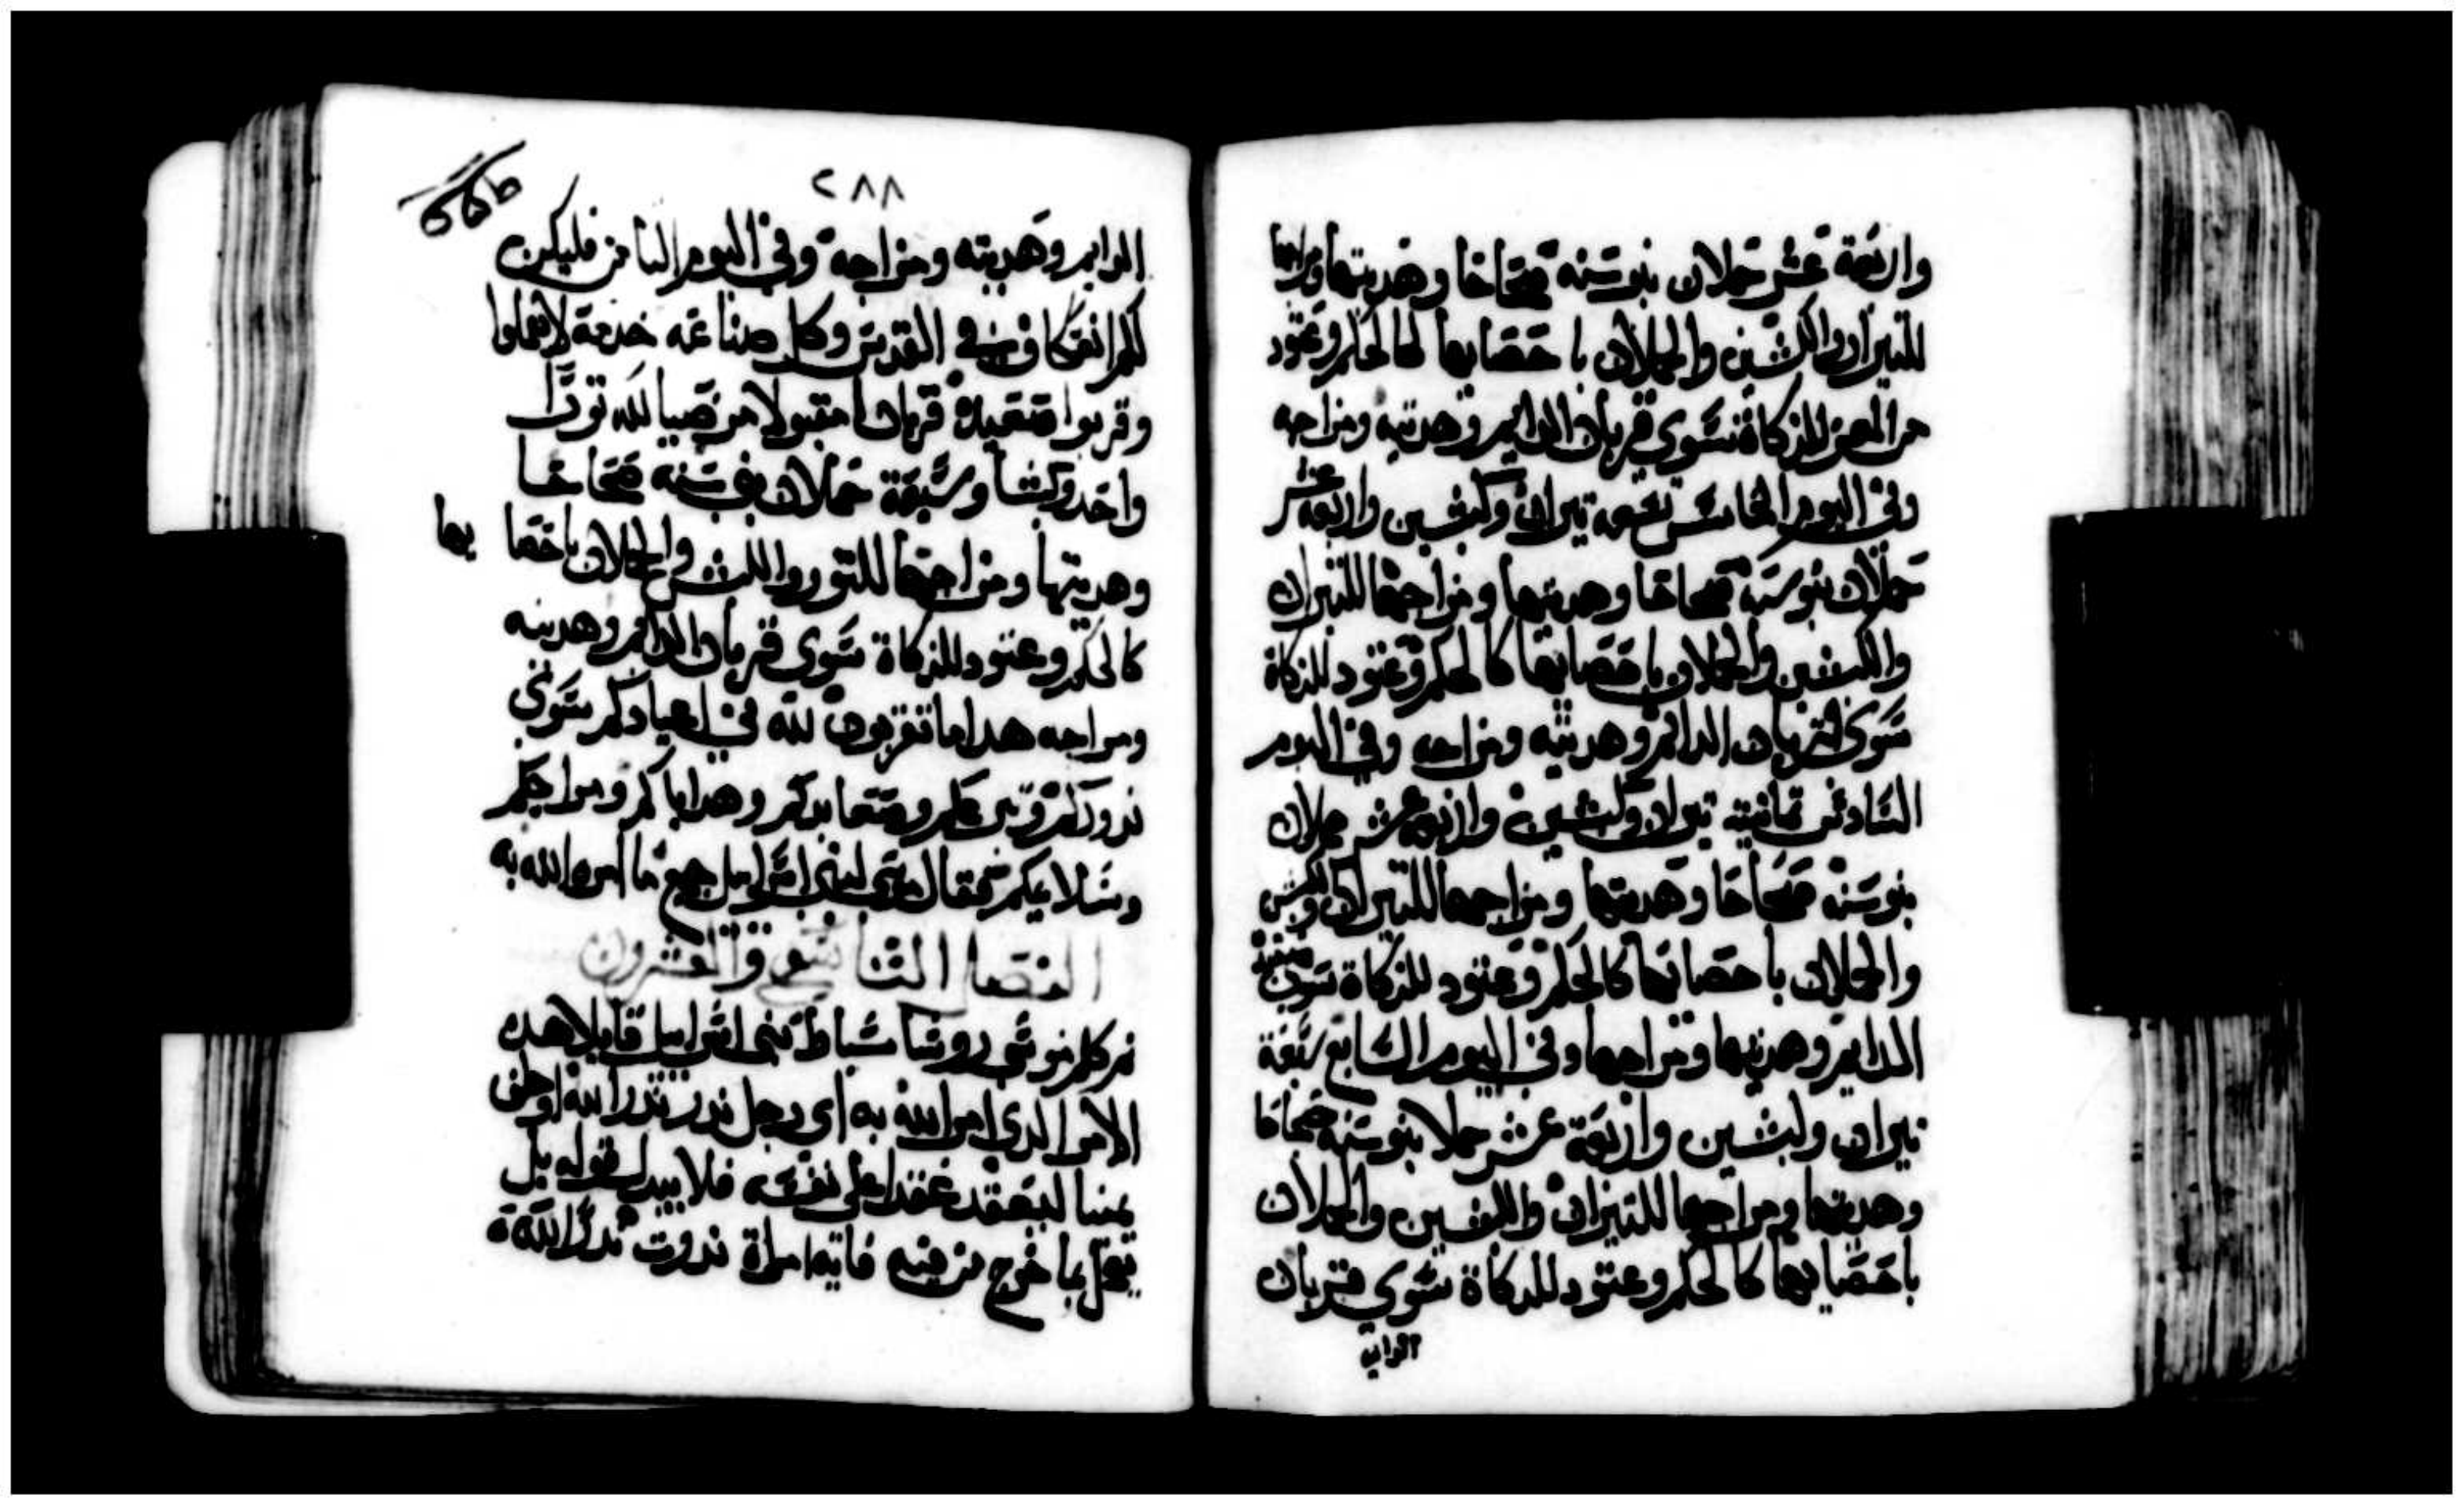 واربعة عشر حملان بنو سنه صحاحا وهديتها ومزاجها
للتيران والكبشين والحملان باحصايها كالحكم وعتود
من المعز للزكاة سوي قربان الدايم وهديته ومزاجه
وفي اليوم الخامس تسعه تيران وكبشين واربعه عشر
حملان بنو سنه صحاحا وهديتها ومزاجها للتيران
والكبشين والحملان باحصايها كالحكم وعتود للزكاة
سوي قربان الدايم وهديته ومزاجه وفي اليوم
السادس تمانية تيران وكبشين واربعه عشر حملان
بنو سنه صحاحا وهديتها ومزاجها للتيران والكبشين
والحملان باحصايها كالحكم وعتود للزكاة سوي
الدايم وهديتها ومزاجها وفي اليوم السابع سبعة
تيران وكبشين واربعة عشر حملا بنو سنه صحاحا
وهديتها ومزاجها للتيران والكبشين والحملان
باحصايها كالحكم وعتود للزكاة سوي قربان
الدايم
٢٨٨
الدايم وهديته ومزاجه وفي اليوم التامن فليكن
لكم انعكاف في القدس وكل صناعه خدعة لا تعملوا
وقربوا صعيدة قربانا مقبولا مرضيا لله تورا
واحد وكبشا وسبعة حملان بني سنه صحاحا
وهديتها ومزاجها للتور والكبش والحملان باحصا يها
كالحكم وعتود للزكاة سوي قربان الدايم وهديته
ومزاجه هدا ما تقربون لله في اعيادكم سوي
ندوركم وتبرعكم وصعايدكم وهداياكم ومزاجكم
وسلايمكم فقال موسي لبني اسراييل جميع ما امره الله به
الفصل التاسع والعشرون
تم كلم موسي روسا سباط بني اسراييل قايلا هده
الامر الدي امر الله به اي رجل ندر ندرا لله او حلف
يمينا ليعقد عقدا علي نفسه فلا يبدل قوله بل
يعمل بما خرج من فيه فايه امراة ندرت ندرا لله